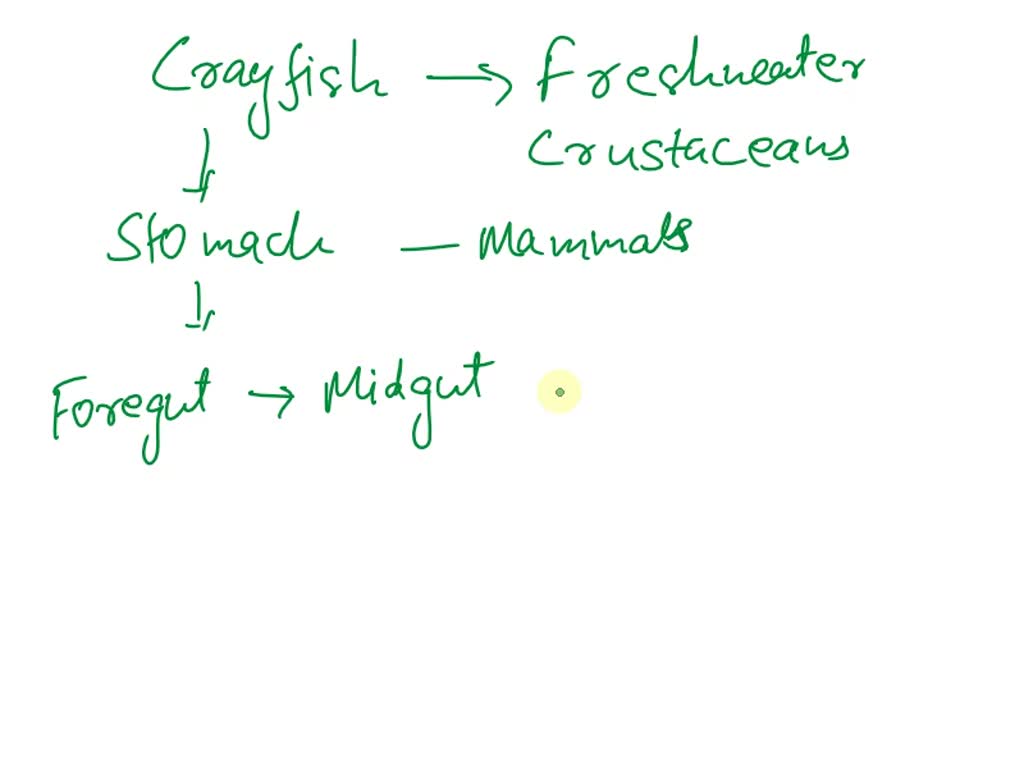 Crayfish → Freshwater
Crustaceans
↓
Stomach — Mammals
↓
Foregut → Midgut